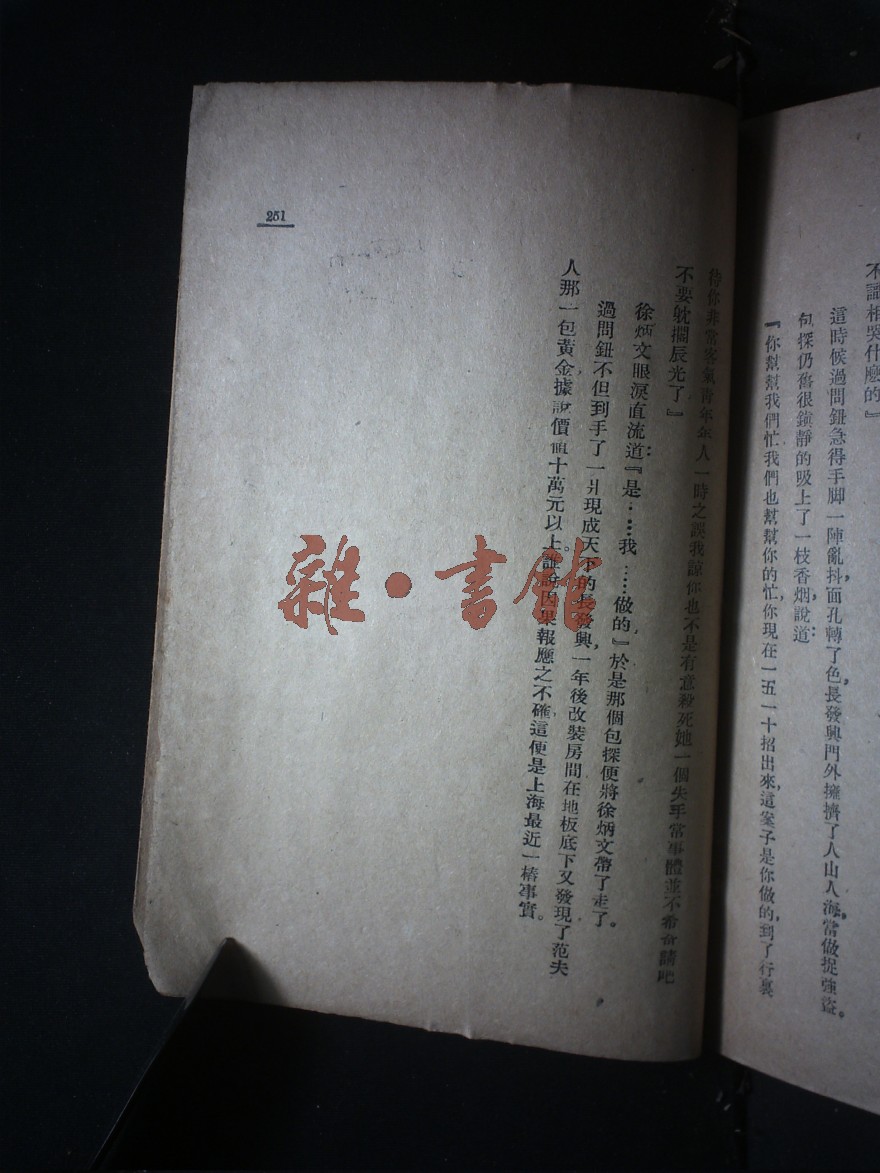 不識相哭什麼的』
這時候過問鈕急得手脚一陣亂抖，面孔轉了色，長發興門外擁擠了人山人海，當做捉強盜。
包探仍舊很鎮靜的吸上了一枝香烟，說道：
『你幫幫我們忙我們也幫幫你的忙，你現在一五一十招出來，這案子是你做的，到了行裏
待你非常客氣青年人一時之誤我諒你也不是有意殺死她一個失手當事體並不希奇請吧
不要躭擱辰光了』
徐炳文眼淚直流道：『是……我……做的』於是那個包探便將徐炳文帶了走了。
過問鈕不但到手了一爿現成天下的長發興，一年後改裝房間在地板底下又發現了范夫
人那一包黃金，據說價值十萬元以上。誰說因果報應之不確，這便是上海最近一樁事實。
251
雜·書館